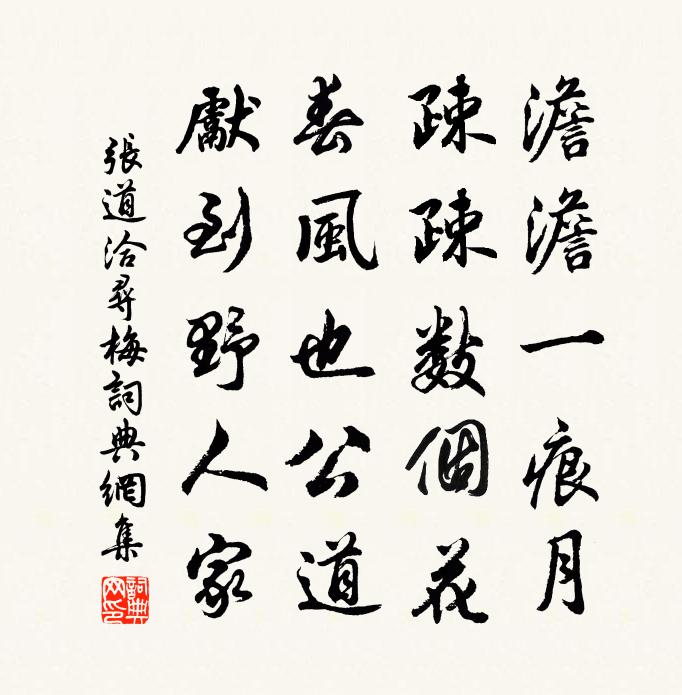 澹澹一痕月
疎疎數個花
春風也公道
獻到野人家
張道洽尋梅詞典網集
詞典網印